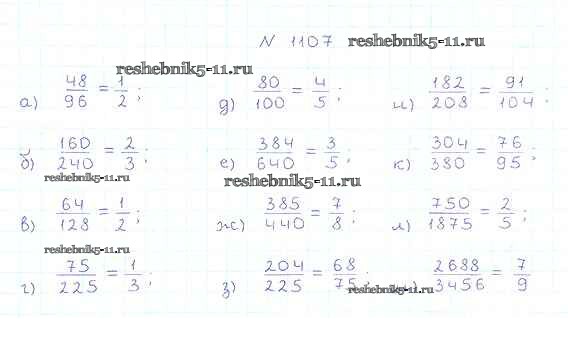 N 1107 reshebnik5-11.ru
reshebnik5-11.ru
а) 48/96 = 1/2; д) 80/100 = 4/5; и) 182/208 = 91/104;
б) 160/240 = 2/3; е) 384/640 = 3/5; к) 304/380 = 76/95;
reshebnik5-11.ru
reshebnik5-11.ru
в) 64/128 = 1/2; ж) 385/440 = 7/8; л) 750/1875 = 2/5;
reshebnik5-11.ru
г) 75/225 = 1/3; з) 204/225 = 68/75 2688/3456 = 7/9
reshebnik5-11.ru